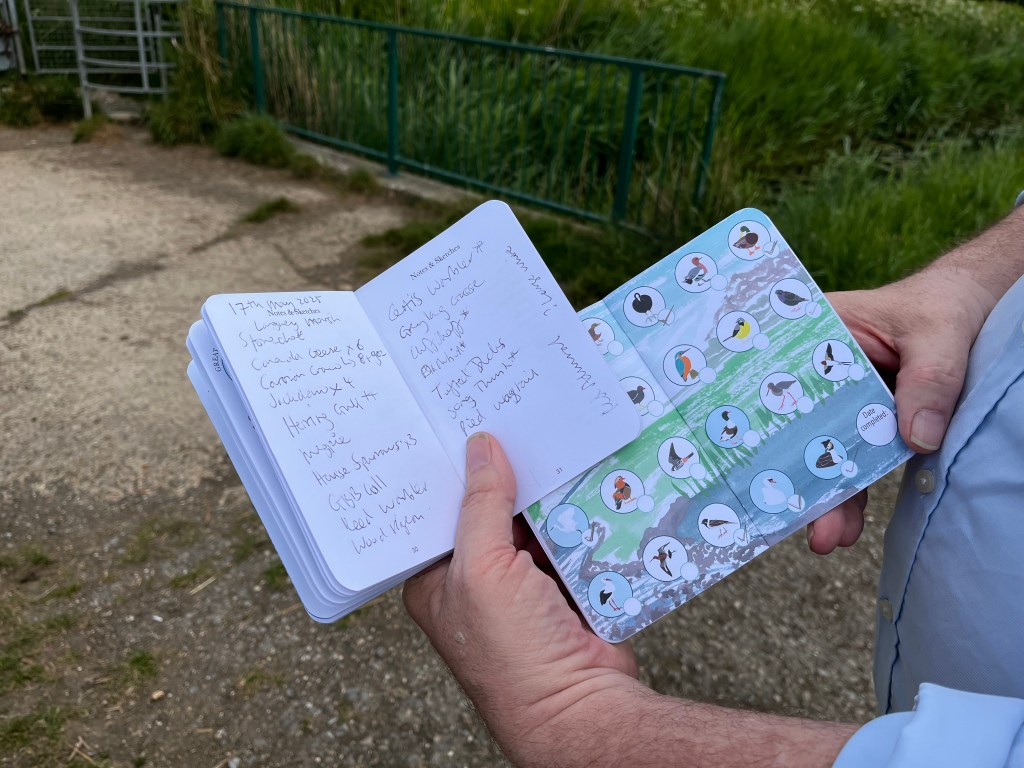 17th May 2025
Notes & Sketches
Lingney Marsh
Stonechat
Canada Geese x6
Carrion Crows
Jackdaws x 4
Herring Gull ++
magpie
House Sparrows x3
GBB Gull
Reed Warbler
Wood Pigeon
30
Notes & Sketches
Cetti's Warbler *
Greylag Goose
chiffchaff *
Blackbird *
Tufted Ducks
Song Thrush
Pied wagtail
31
Kestrel
GREAT
Date
completed: